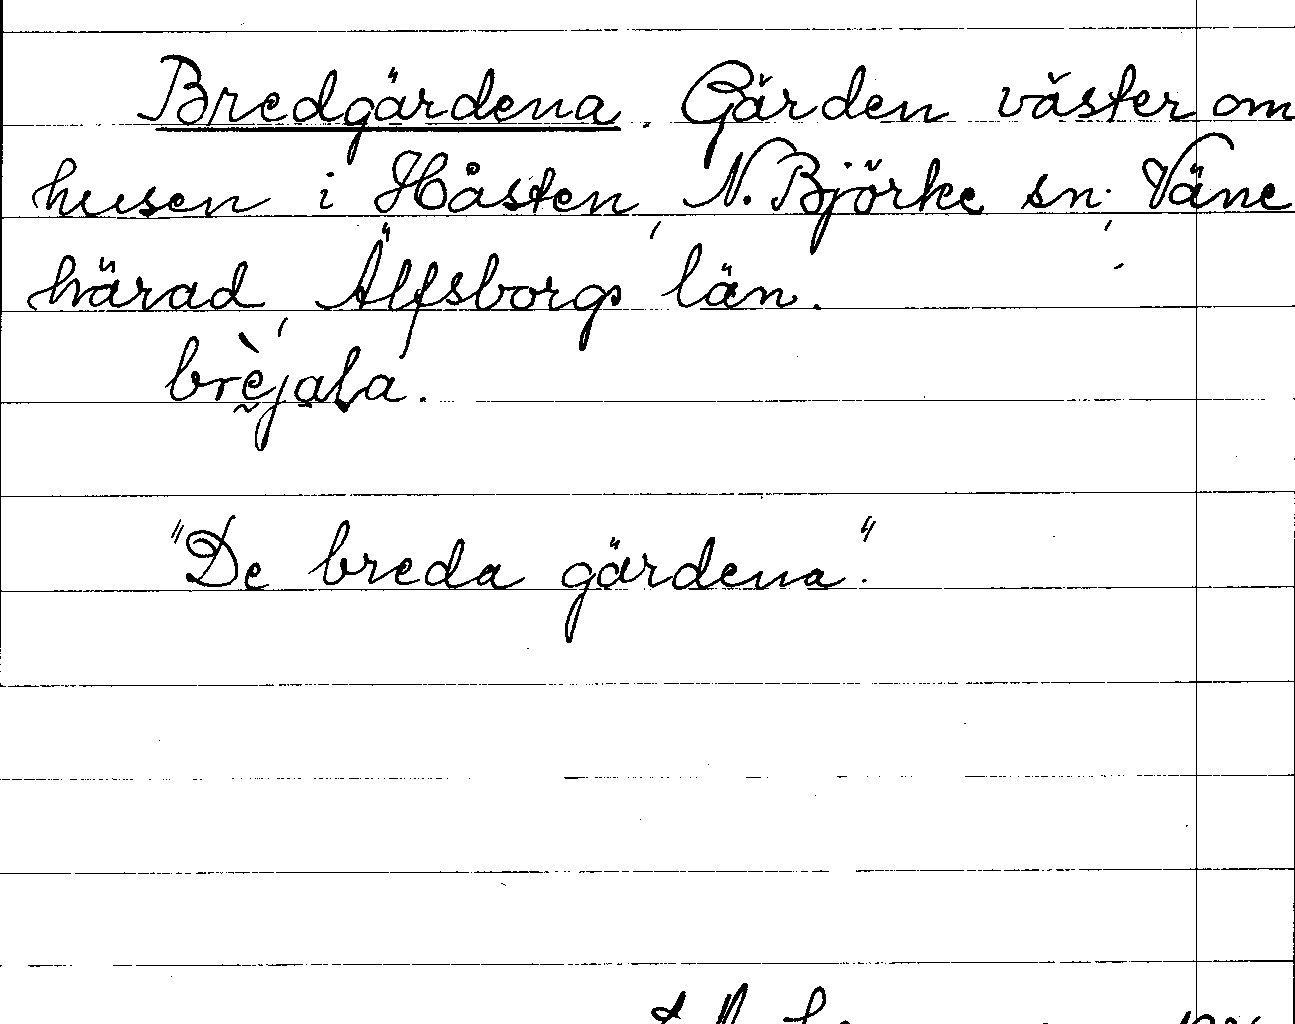 Bredgärdena. Gärden väster om
husen i Håsten, N. Björke sn, Väne
härad, Älfsborgs län.
brèjaɫa.
"De breda gärdena".